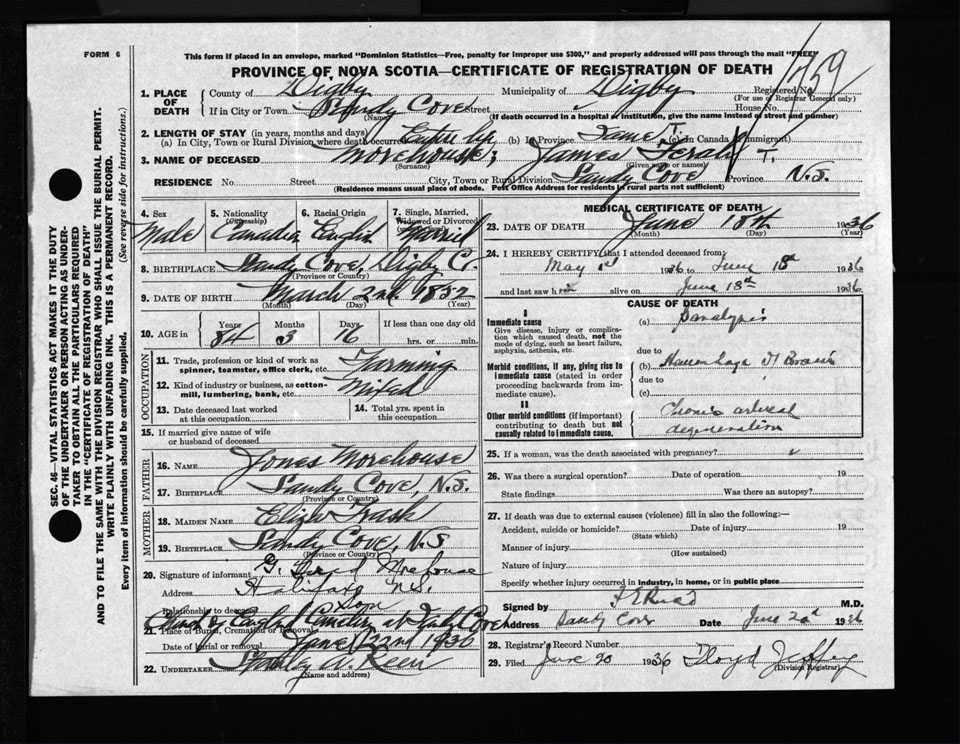 FORM 6
This form if placed in an envelope, marked "Dominion Statistics—Free, penalty for improper use $300," and properly addressed will pass through the mail "FREE"
PROVINCE OF NOVA SCOTIA—CERTIFICATE OF REGISTRATION OF DEATH
1. PLACE OF DEATH
County of Digby
Municipality of Digby
Registered No. 1759
(For use of Registrar General only)
If in City or Town Sandy Cove Street House No.
(Name)
(If death occurred in a hospital or institution, give the name instead of street and number)
2. LENGTH OF STAY (in years, months and days)
(a) In City, Town or Rural Division where death occurred Entire life (b) In Province Same (c) In Canada (if immigrant)
3. NAME OF DECEASED Morehouse, James T.
(Surname) (Given name or names)
RESIDENCE No. Street City, Town or Rural Division Sandy Cove Province N.S.
(Residence means usual place of abode. Post Office Address for residents in rural parts not sufficient)
4. Sex Male
5. Nationality (Citizenship) Canadian
6. Racial Origin English
7. Single, Married, Widowed or Divorced Married
8. BIRTHPLACE Sandy Cove, Digby Co.
(Province or Country)
9. DATE OF BIRTH March 2nd 1852
(Month) (Day) (Year)
10. AGE in Years 84 Months 3 Days 16 If less than one day old hrs. or min.
OCCUPATION
11. Trade, profession or kind of work as spinner, teamster, office clerk, etc. Farming
12. Kind of industry or business, as cotton-mill, lumbering, bank, etc. Mixed
13. Date deceased last worked at this occupation
14. Total yrs. spent in this occupation
15. If married give name of wife or husband of deceased
FATHER
16. NAME Jones Morehouse
17. BIRTHPLACE Sandy Cove, N.S.
(Province or Country)
MOTHER
18. MAIDEN NAME Eliza Trash
19. BIRTHPLACE Sandy Cove, N.S
(Province or Country)
20. Signature of informant G. Morehouse
Address Halifax N.S.
Relationship to deceased Son
21. Place of Burial, Cremation or Removal Church of England Cemetery at Sandy Cove
Date of burial or removal June 22nd 1936
22. UNDERTAKER Stanley A.
(Name and address)
MEDICAL CERTIFICATE OF DEATH
23. DATE OF DEATH June 18th 1936
(Month) (Day) (Year)
24. I HEREBY CERTIFY that I attended deceased from
May 1st 1936 to June 18th 1936
and last saw him alive on June 18th 1936
CAUSE OF DEATH
I
Immediate cause
Give disease, injury or complication which caused death, not the mode of dying, such as heart failure, asphyxia, asthenia, etc.
(a) Paralysis
due to
Morbid conditions, if any, giving rise to immediate cause (stated in order proceeding backwards from immediate cause).
(b) Haemorrhage of Brain
due to
(c)
II
Other morbid conditions (if important) contributing to death but not causally related to immediate cause.
Chronic arterial degeneration
25. If a woman, was the death associated with pregnancy?
26. Was there a surgical operation? Date of operation 19
State findings Was there an autopsy?
27. If death was due to external causes (violence) fill in also the following:—
Accident, suicide or homicide? Date of injury 19
(State which)
Manner of injury
(How sustained)
Nature of injury
Specify whether injury occurred in industry, in home, or in public place
Signed by M.D.
Address Sandy Cove Date June 20th 1936
28. Registrar's Record Number
29. Filed June 20 1936 Lloyd Jeffrey
(Division Registrar)
SEC. 46—VITAL STATISTICS ACT MAKES IT THE DUTY
OF THE UNDERTAKER OR PERSON ACTING AS UNDER-
TAKER TO OBTAIN ALL THE PARTICULARS REQUIRED
IN THE "CERTIFICATE OF REGISTRATION OF DEATH"
AND TO FILE THE SAME WITH THE DIVISION REGISTRAR WHO SHALL ISSUE THE BURIAL PERMIT.
WRITE PLAINLY WITH UNFADING INK. THIS IS A PERMANENT RECORD.
Every item of information should be carefully supplied. (See reverse side for instructions.)